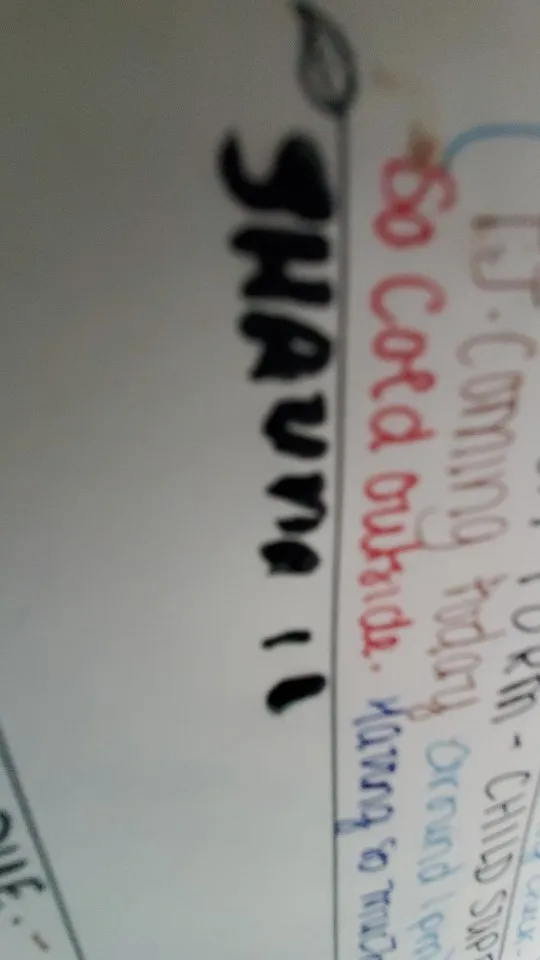 FORM - CHILD SUPP
T.J. coming today around 1 pm
So Cold outside. Having so much
SHAUna 11